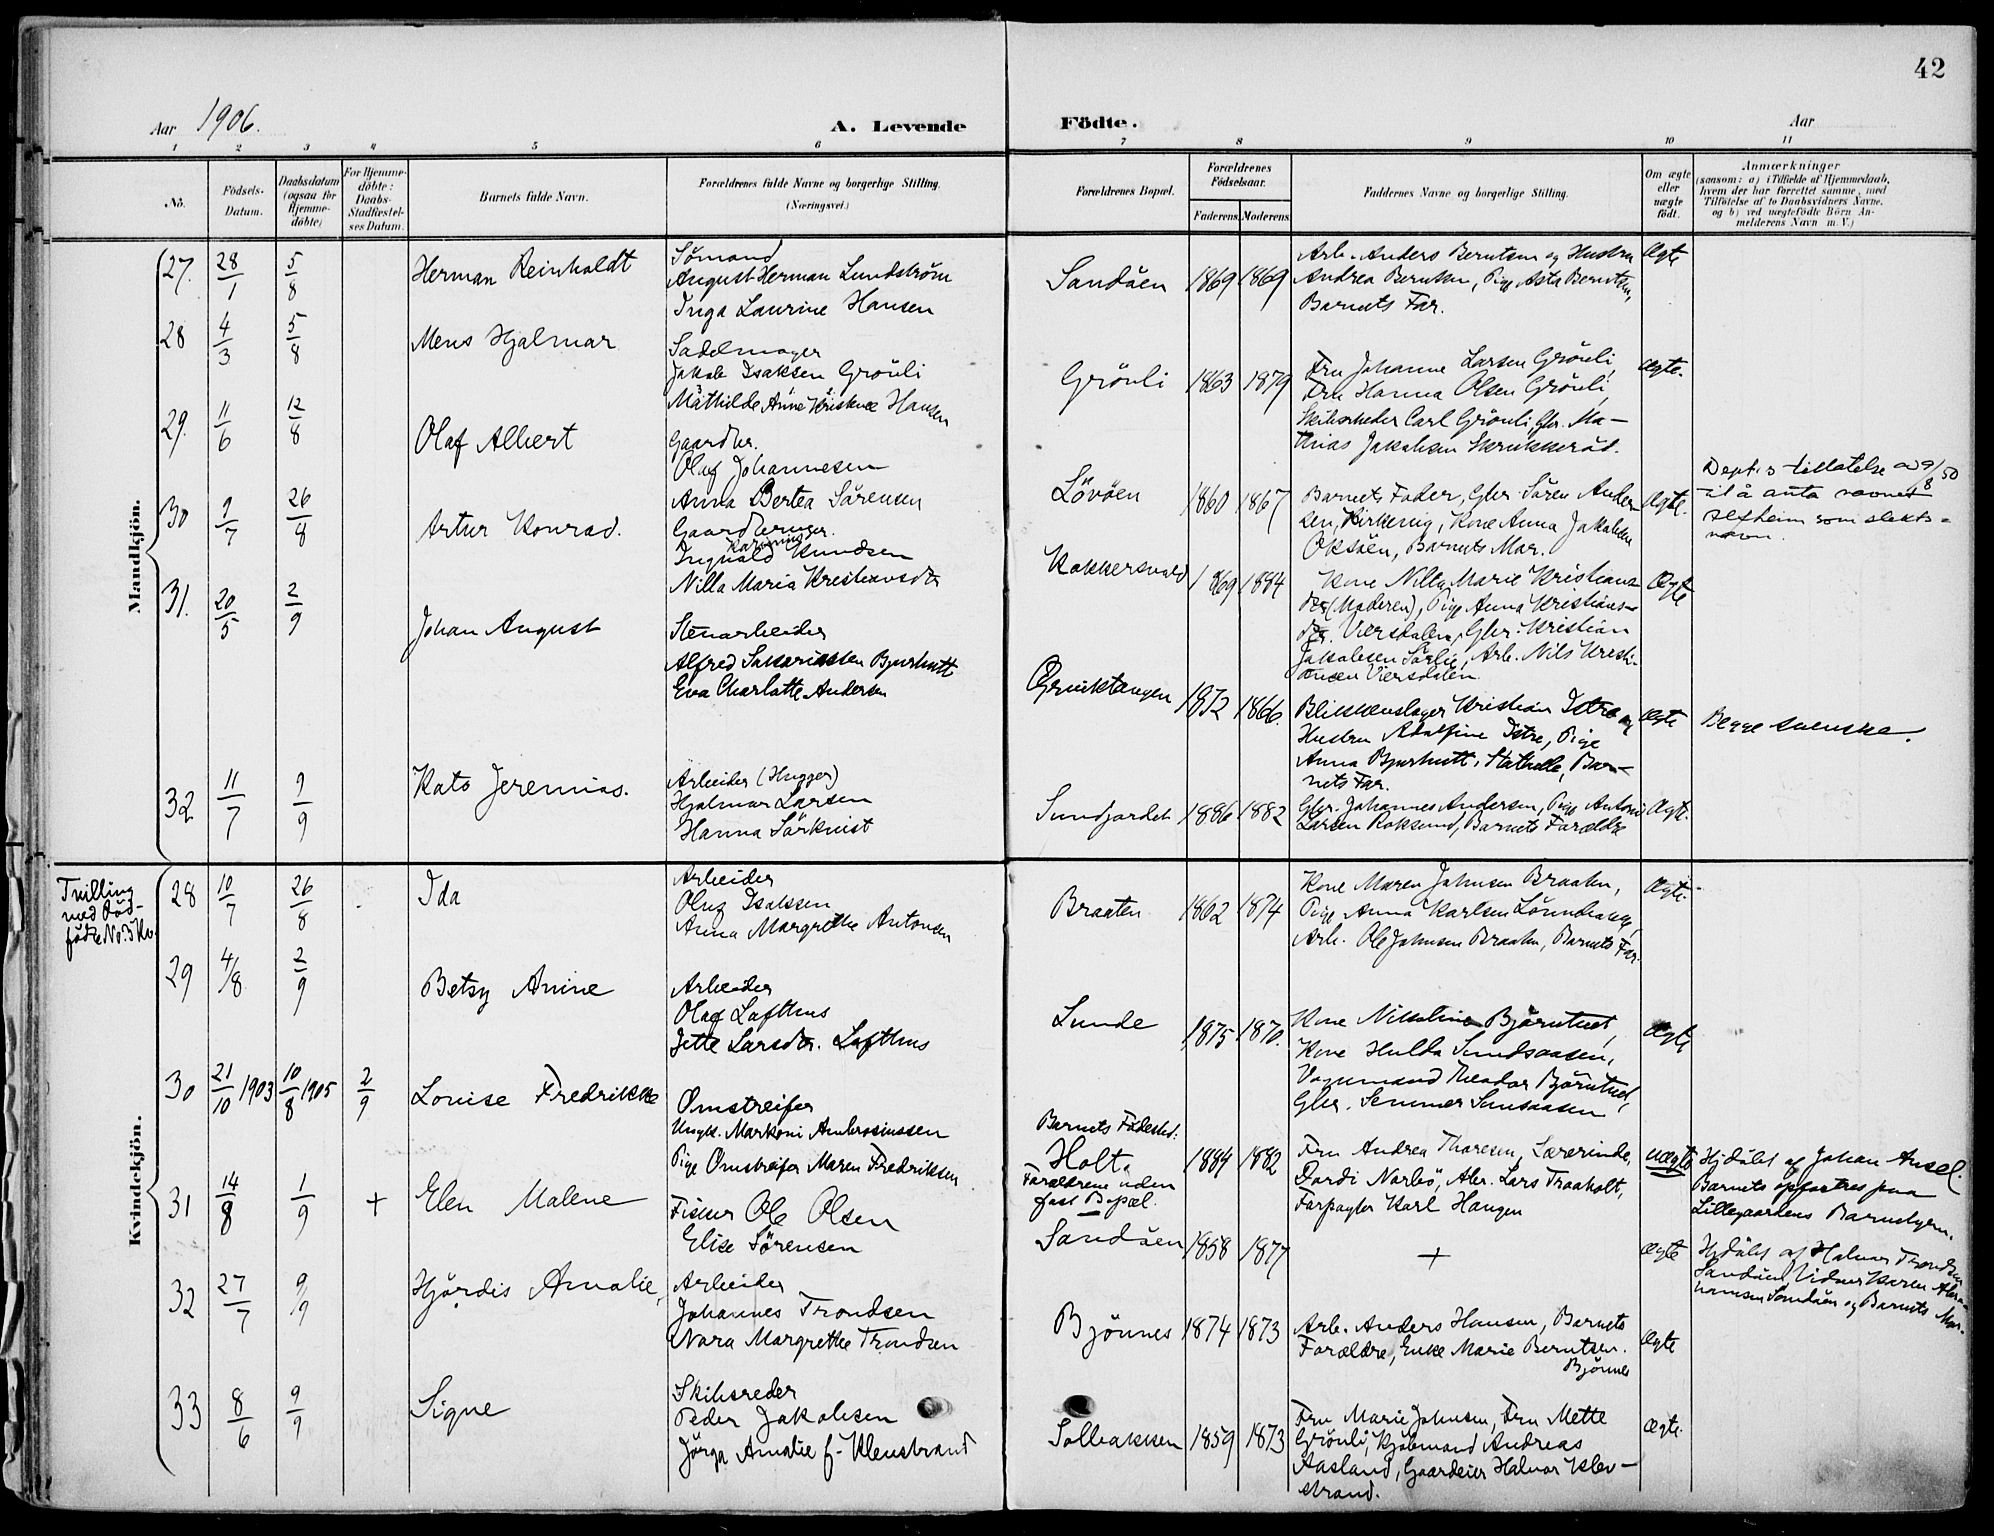 42
Aar 1906.
A. Levende Födte.
Aar
1 2 3 4 5 6 7 8 9 10 11
No.
Födsels-Datum.
Daabsdatum (ogsaa for Hjemme-döbte)
For Hjemme-döbte: Daabs-Stadfæstel-ses Datum.
Barnets fulde Navn.
Forældrenes fulde Navne og borgerlige Stilling. (Næringsvei.)
Forældrenes Bopæl.
Forældrenes Födselsaar.
Faderens. Moderens.
Faddernes Navne og borgerlige Stilling.
Om ægte eller uægte födt.
Anmærkninger
(saasom: a) i Tilfælde af Hjemmedaab,
hvem der har forrettet samme, med
Tilföielse af to Daabsvidners Navne.
og b) ved uægtefödte Börn An-
melderens Navn m. V.)
Mandkjön.
27. 28/1 5/8 Herman Reinholdt
Sömand
August Herman Lundström
Inga Laurine Hansen
Sandöen 1869 1869
Arb. Anders Berntsen og Hustru
Andrea Berntsen, Pige Asta Berntsen,
Barnets Far.
Ægte
28 4/3 5/8 Mens Hjalmar
Sadelmager
Jakob Isaksen Grönli
Mathilde Anne Kristine Hansen
Grönli 1863 1879
Fru Johanne Larsen Grönli,
Fru Hanna Olsen Grönli,
Carl Grönli, Gbr. Ma-
thias Jakobsen Skrukkeröd.
Ægte.
29. 11/6 12/8 Olaf Albert
Gaardbr.
Olaf Johannesen
Anna Bertea Sörensen
Lövöen 1860 1867
Barnets Fader, Gbr. Sören Ander-
sen, Kone Anna Jakobsen
Oksöen, Barnets Mor.
Ægte.
Dept.s tillatelse av 9/8 50
til å anta navnet
som slekts-
navn.
30 9/7 26/8 Artur Konrad.
Gaardbruger.
Ingvald Knudsen
Nilla Maria Kristiansdtr
Kokkersvold 1869 1884
Kone Nilla Marie Kristians-
dtr (Moderen), Pige Anna Kristians-
dtr. Viersdalen, Gbr. Kristian
Jakobsen Sörlie, Arb. Nils Kristi-
ansen Viersdalen.
Ægte
31. 20/5 2/9 Johan August
Stenarbeider
Alfred Sakariassen Bjurhutt
Eva Charlotte Andersen
1872 1866.
Blikkenslager Kristian Istre og
Hustru Adolfine Istre, Pige
Anna Bjurhutt, Stathelle, Bar-
nets Far.
Ægte
Begge svenske.
32 11/7 9/9 Kato Jeremias.
Arbeider (Hugger)
Hjalmar Larsen
Hanna Sörkvist
Sundjordet 1886 1882
Gbr. Johannes Andersen, Pige Antoni
Larsen Roksund, Barnets Forældre
Ægte.
Kvindekjön.
Tvilling
med död-
födte No. 3 Kv.
28 10/7 26/8 Ida
Arbeider
Oluf Isaksen
Anna Margrethe Antonsen
Braaten 1862 1874
Kone Maren Johnsen Braaten,
Pige Anna Karlsen
Arb. Ole Johnsen Braaten, Barnets Far.
Ægte.
29 4/8 2/9 Betsy Anine
Arbeider
Olaf Lofthus
Jette Larsdtr. Lofthus
Lunde 1875 1870.
Kone Nikoline Björntvet,
Kone Hulda Sundsaasen,
Theodor Björntvet,
Gbr.
Ægte
30 21/10 1903 10/8 1905 2/9 Louise Fredrikke
Omstreifer
Ungk. Markoni Ambrosiussen
Pige Omstreifer Maren Fredriksen
Barnets Födested:
Holt.
Forældrene uden
fast Bopæl.
1884 1882
Fru Andrea Thoresen, Lærerinde
Dordi Narbö, Lars Traaholt,
Forpagter Karl Haugen
uægte
Hjdöbt af Johan Ansel.
Barnet opfostres paa
Lillegaardens Barnehjem.
31 14/8 1/9 + Elen Malene
Fisker Ole Olsen
Elise Sörensen
Sandöen 1858 1877
+
Ægte
Hjdöbt af Halvor Trondsen
Sandöen. Vidner Karen
Sandöen og Barnets Mor.
32 27/7 9/9 Hjördis Amalie,
Arbeider
Johannes Trondsen
Nora Margrethe Trondsen
Bjönnes 1874 1873
Arb. Anders Hansen, Barnets
Forældre, Enke Marie Berntsen.
Bjönnes
Ægte
33 8/6 9/9 Signe
Skibsreder
Peder Jakobsen
Amalie f. Klevstrand
Solbakken 1859 1873
Fru Marie Johnsen, Fru Mette
Grönli, Kjöbmand Andreas
Aasland, Gaardeier Halvor Klev-
strand.
Ægte.